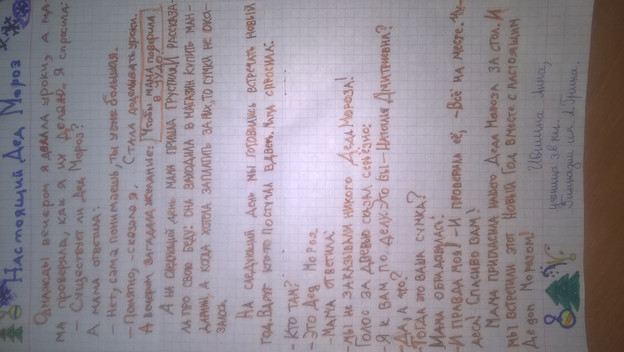 Настоящий Дед Мороз
Однажды вечером я делала уроки, а ма-
ма проверяла, как я их делаю. Я спросила:
- Существует ли Дед Мороз?
А мама ответила:
- Нет, сама понимаешь, ты уже большая.
- Понятно, - сказала я. Стала доделывать уроки.
А вечером загадала желание: Чтобы мама поверила
в чудо!
А на следующий день мама пришла грустная и рассказа-
ла про свою беду: она заходила в магазин купить ман-
дарины, а когда хотела заплатить за них, то сумка не ока-
залось.
На следующий день мы готовились встречать Новый
год. Вдруг кто-то постучал в дверь. Мама спросила:
- Кто там?
- Это Дед Мороз
- Мама ответила:
- Мы не заказывали никого Деда Мороза!
Голос за дверью сказал серьёзно:
- Я к вам по делу. Это Вы - Наталия Дмитриевна?
- Да, а что?
- Тогда это ваша сумка?
Мама обрадовалась!
- И правда моя! - И проверила её, - Всё на месте. Чу-
деса! Спасибо Вам!
Мама пригласила нашего Деда Мороза за стол. И
мы встретили этот Новый Год вместе с настоящим
Дедом Морозом!
Анна,
ученица 3 "в" кл.
Гимназии им. А. Грина.